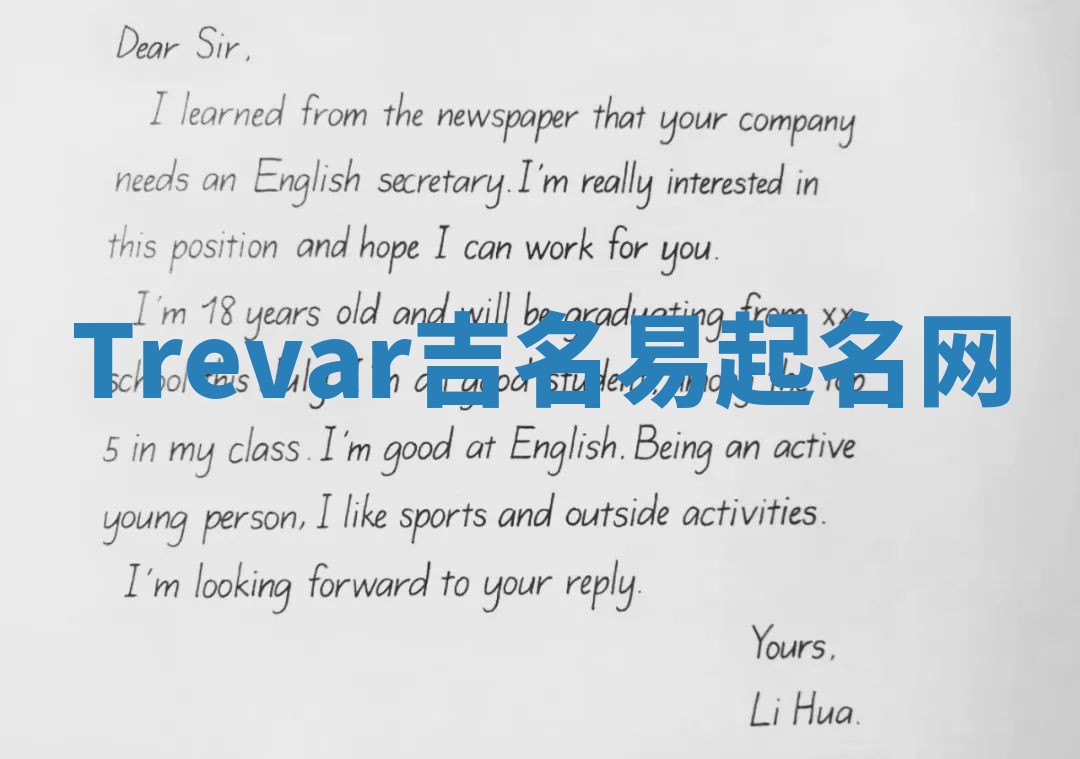 Dear Sir,
I learned from the newspaper that your company
needs an English secretary. I'm really interested in
this position and hope I can work for you.
I'm 18 years old and will be graduating from xx
Trevar吉名易起名网
school this July. I'm a good student, among the top
5 in my class. I'm good at English. Being an active
young person, I like sports and outside activities.
I'm looking forward to your reply.
Yours,
Li Hua.